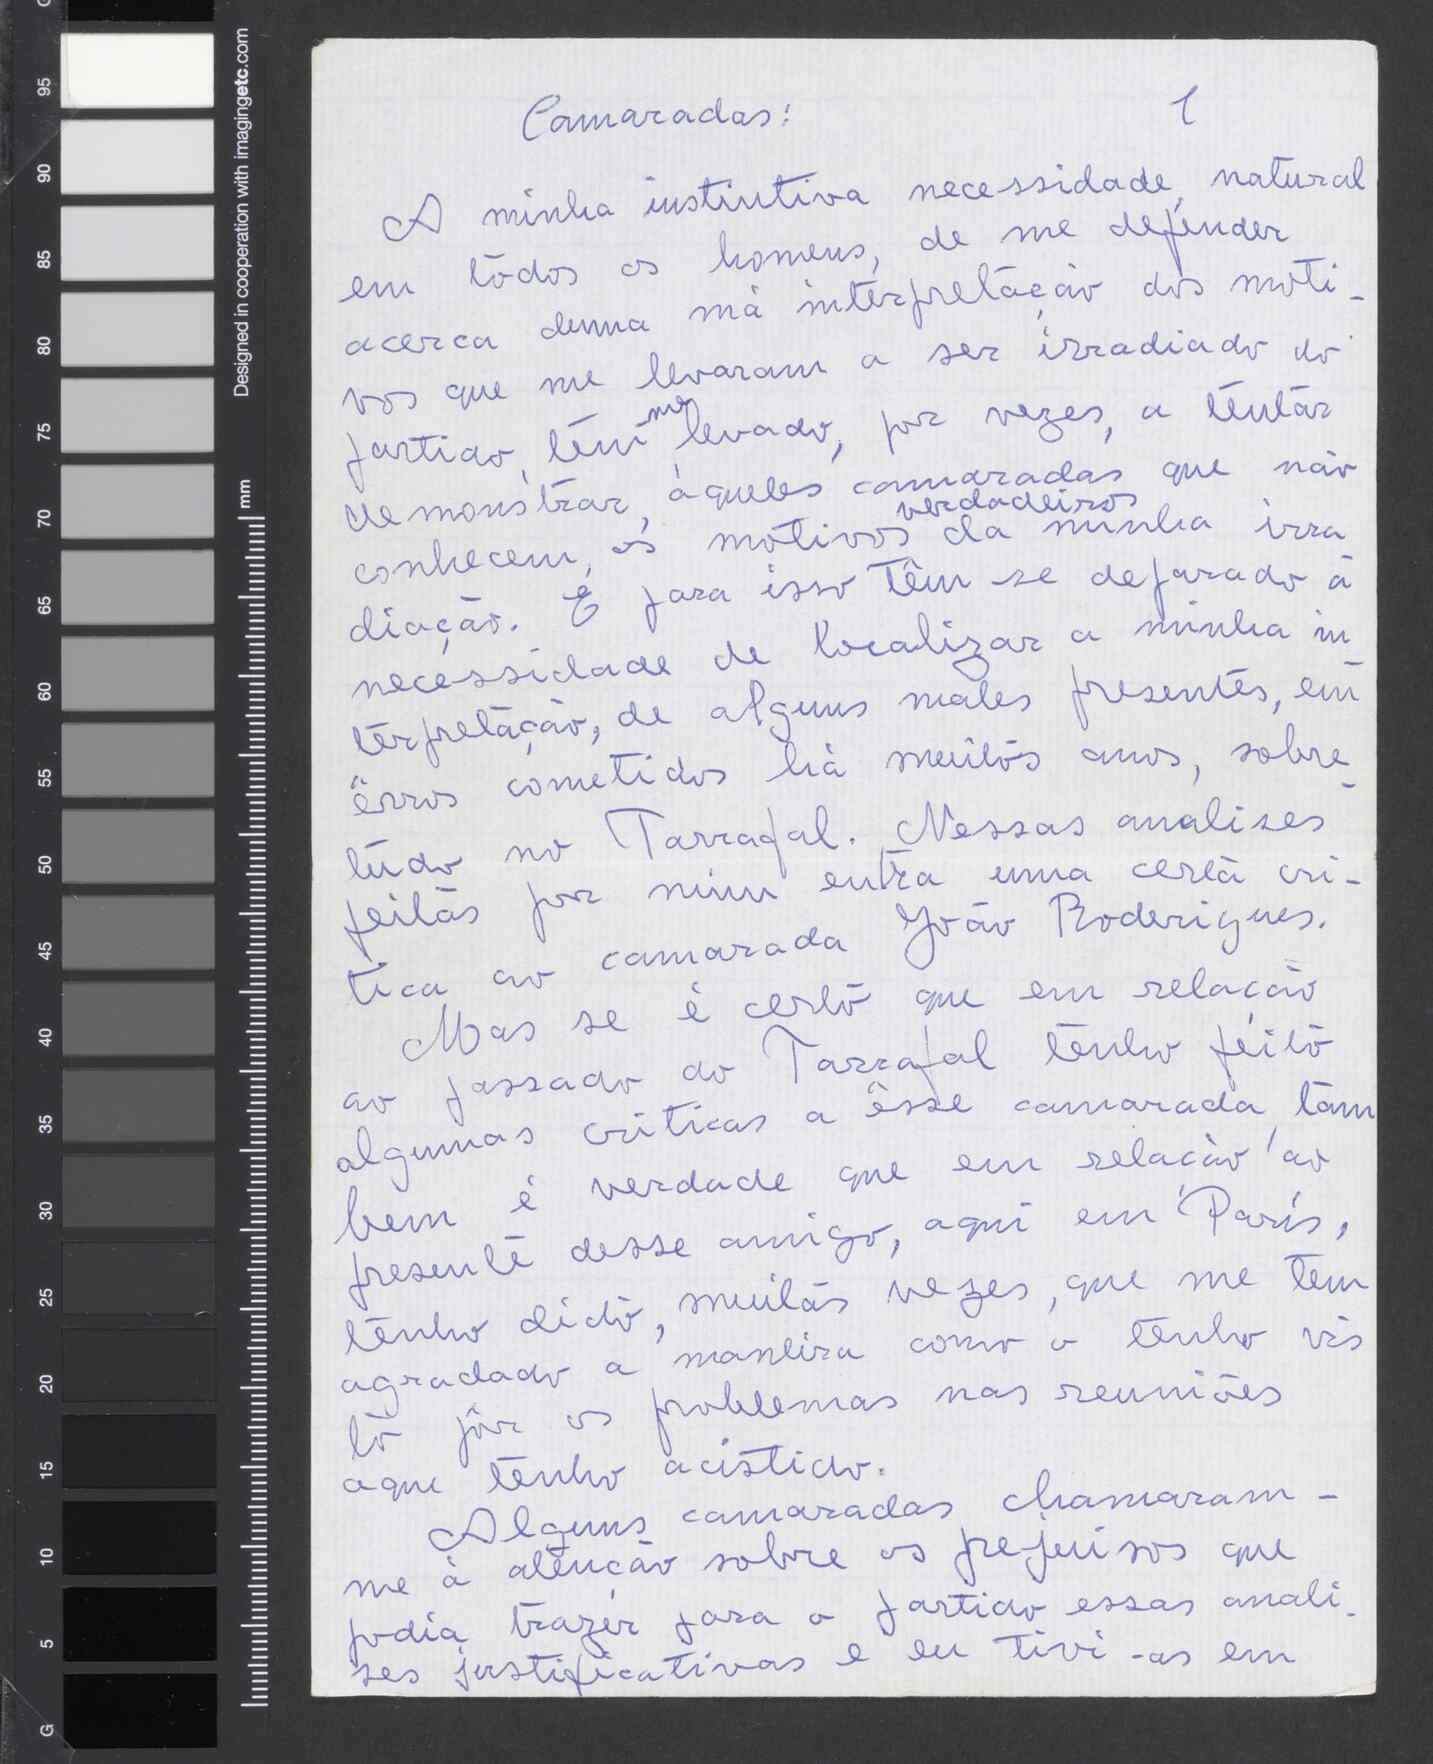 Camaradas: 1
A minha instintiva necessidade, natural
em tôdos os homens, de me defender
acerca duma má interpretação dos moti-
vos que me levaram a ser irradiado do
partido, têm me levado, por vezes, a tentar
demonstrar, àqueles camaradas que não
conhecem, os motivos verdadeiros da minha irra
diação. E para isso têm-se deparado à
necessidade de localizar a minha in
terpretação, de alguns males presentes, em
êrros cometidos há muitos anos, sobre-
tudo no Tarrafal. Nessas analises
feitas por mim entra uma certa cri-
tica ao camarada João Roderigues.
Mas se é certo que em relação
ao passado do Tarrafal tenho feito
algumas criticas a êsse camarada, tam
bem é verdade que em relação ao
presente desse amigo, aqui em París,
tenho dido, muitas vezes, que me tem
agradado a maneira como o tenho vis
to pôr os problemas nas reuniões
aque tenho acistido.
Alguns camaradas chamaram-
me à atenção sobre os prejuisos que
podia trazer para o partido essas anali-
ses justificativas e eu tivi-as em
95
90
85
80
75
70
65
60
55
50
45
40
35
30
25
20
15
10
5
G
Designed in cooperation with imagingetc.com
mm